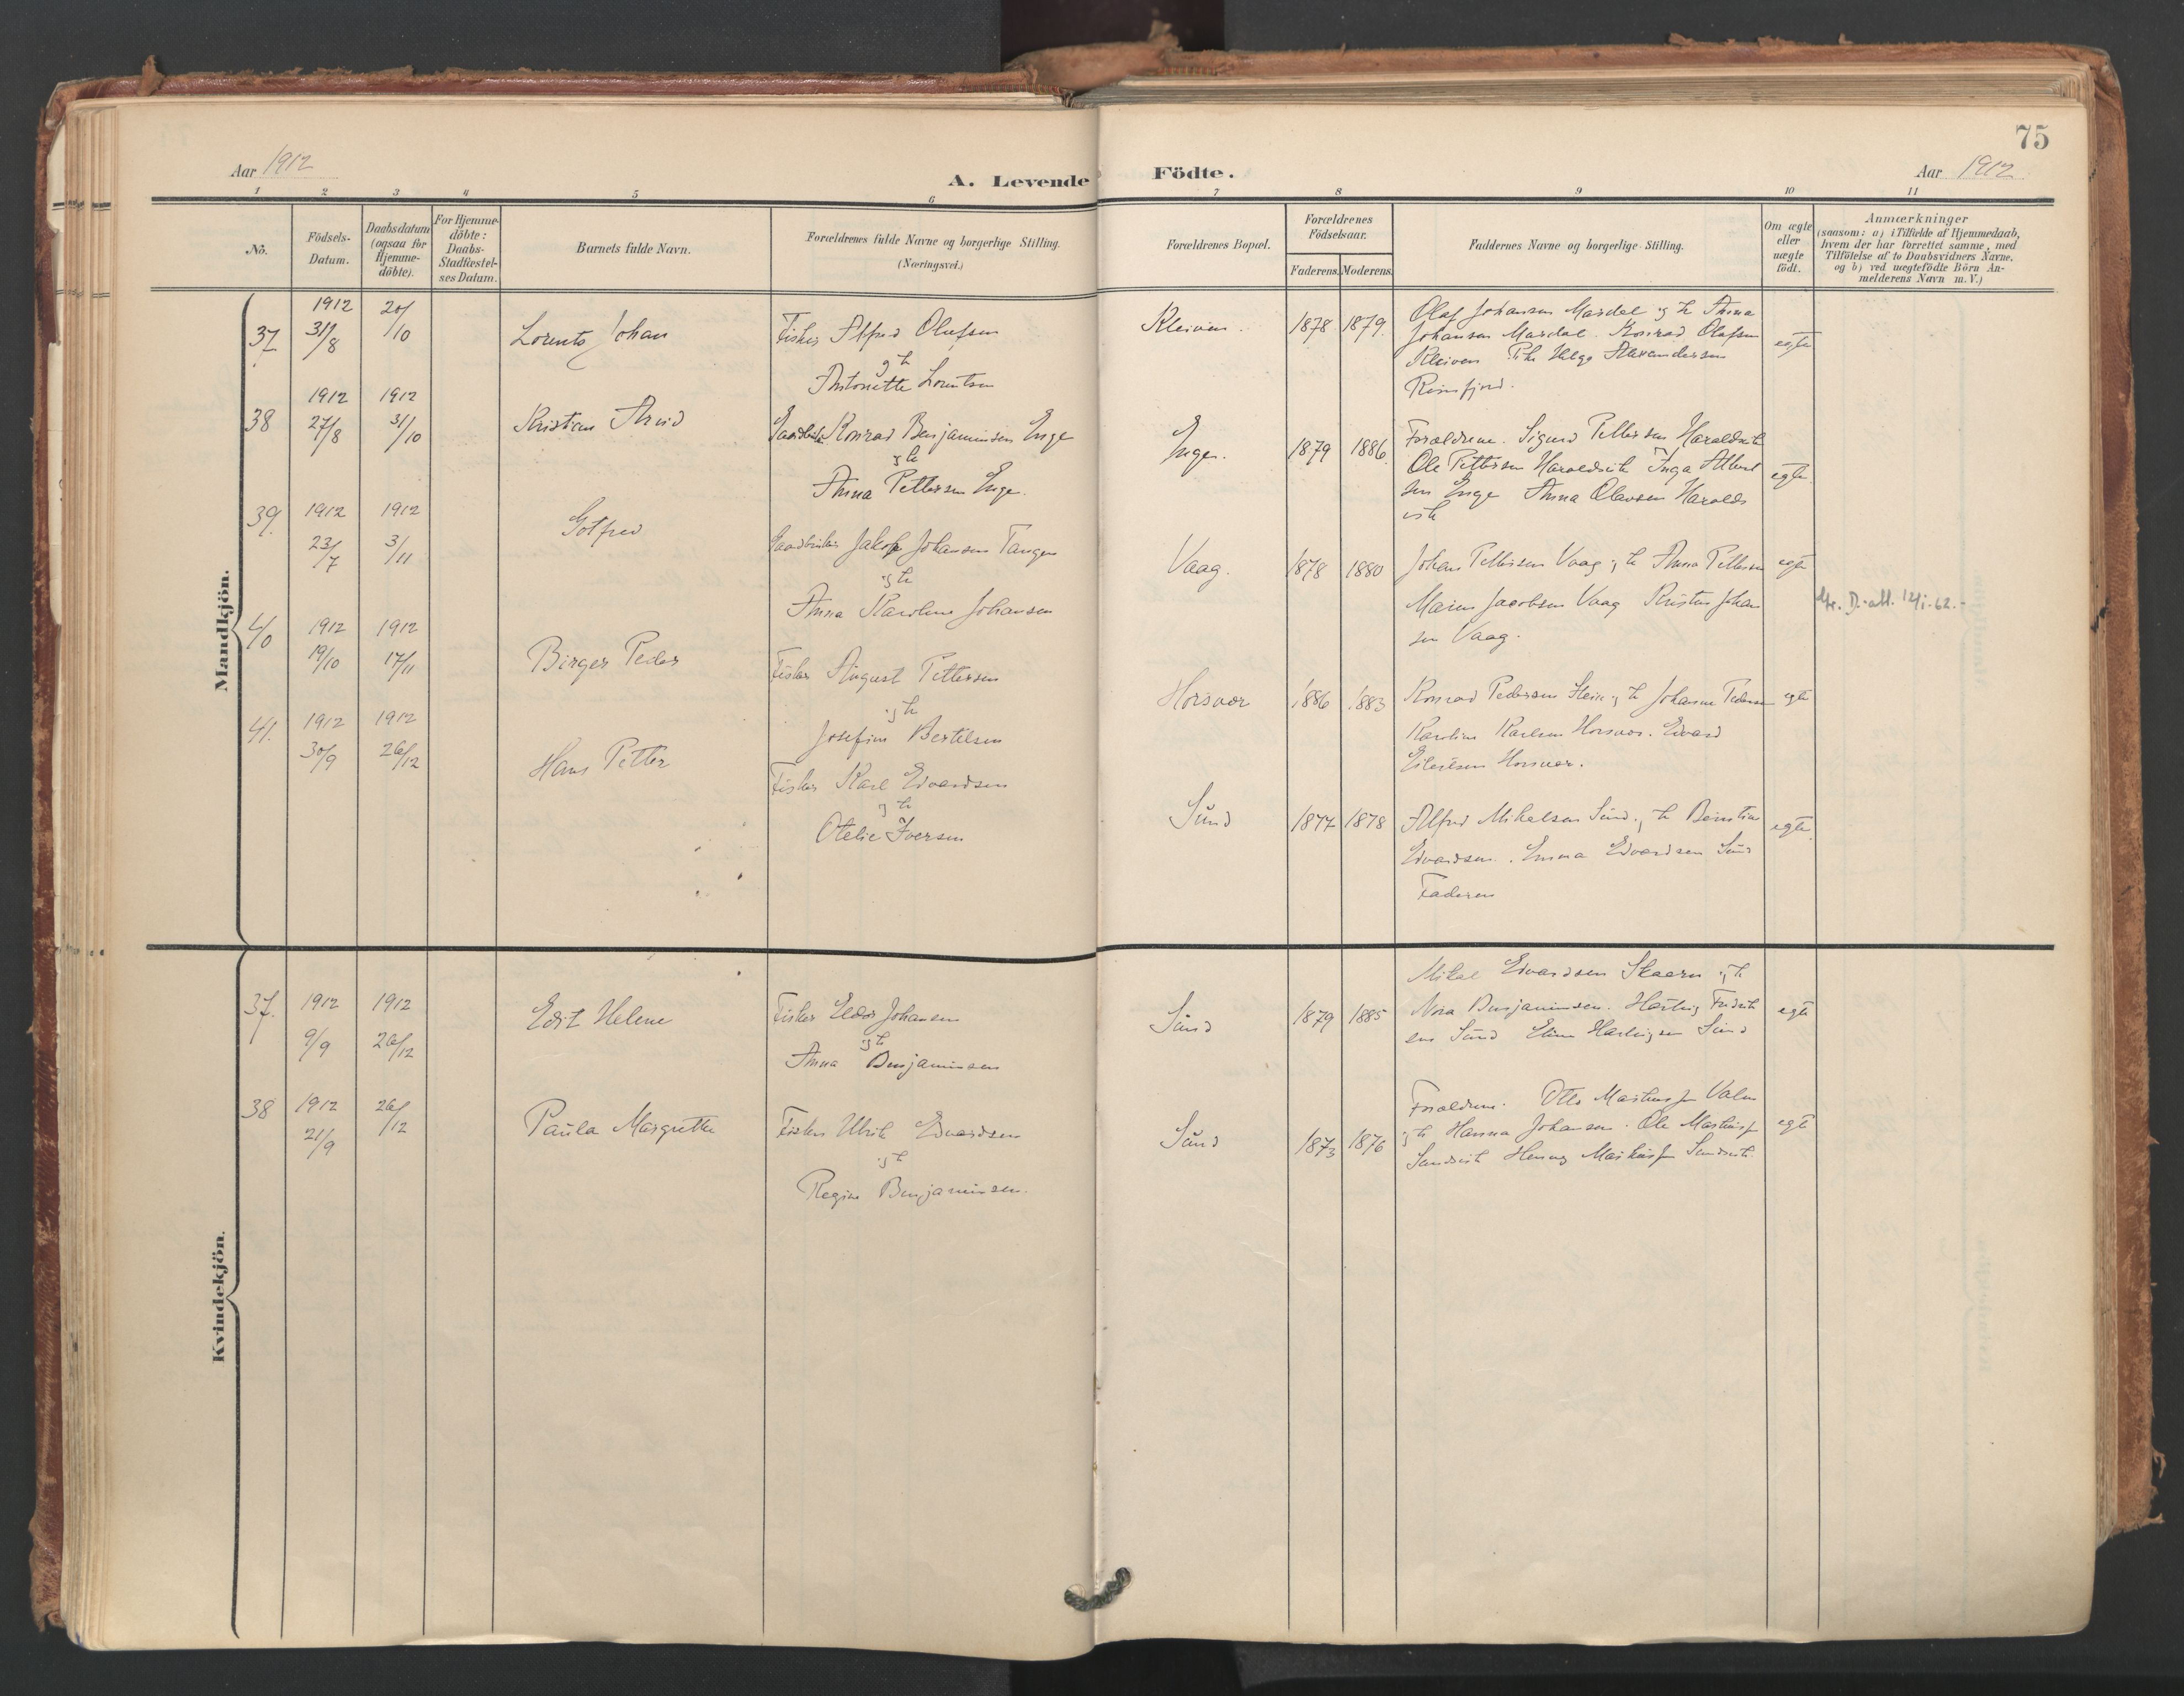 75
Aar 1912
A. Levende Födte.
Aar 1912
1 2 3 4 5 6 7 8 9 10 11
No.
Födsels-
Datum.
Daabsdatum
(ogsaa for
Hjemme-
döbte).
For Hjemme-
döbte:
Daabs-
Stadfæstel-
ses Datum.
Barnets fulde Navn.
Forældrenes fulde Navne og borgerlige Stilling.
(Næringsvei.)
Forældrenes Bopæl.
Forældrenes
Födselsaar.
Faderens. Moderens.
Faddernes Navne og borgerlige Stilling.
Om ægte
eller
uægte
födt.
Anmærkninger
(saasom: a) i Tilfælde af Hjemmedaab,
hvem der har forrettet samme, med
Tilföielse af to Daabsvidners Navne,
og b) ved uægtefödte Börn An-
melderens Navn m. V.)
Mandkjön.
37
1912
31/8
20/10
Lorents Johan
Fisker Alfred Olufsen
og h
Antonette Lorentsen
Kleiven.
1878 1879.
Olaf Johansen Mardal og h Anna
Johansen Mardal. Konrad Olafsen
Kleiven Pike Helga Alexandersen
egte
38
1912 1912
27/8 31/10
Kristian Arvid
Gaardbruker Konrad Benjaminsen Enge
og h
Anna Pettersen Enge.
Enge.
1879 1886.
Forældrene. Sigurd Pettersen Haroldsvik
Ole Pettersen Haroldsvik Inga Albert
sen Enge Anna Olavsen Harolds
vik
egte
39.
1912 1912
23/7 3/11
Gotfred
Gaardbruker Jakob Johansen Tangen
og h
Anna Karoline Johansen
Vaag.
1878 1880
Johan Pettersen Vaag og h Anna Pettersen
Marius Jacobsen Vaag Kristen Johan
sen Vaag.
egte
D.-att. 12/1-62.-
40
1912 1912
19/10 17/11
Birger Peder
Fisker August Pettersen
og h
Josefine Bertilsen
Horsvær
1886 1883
Konrad Pedersen Stein og h Johanne Pedersen
Karoline Karlsen Horsvær. Edvard
Eilertsen Horsvær.
egte
41.
1912 1912
30/9 26/12
Hans Petter
Fisker Karl Edvardsen
og h
Otelie Iversen
Sund
1877 1878
Alfred Mikalsen Sund og h Berntine
Edvardsen. Emma Edvardsen Sund
Faderen
egte.
Kvindekjön.
37.
1912 1912
9/9 26/12
Edit Helene
Fisker Elder Johansen
og h
Anna Benjaminsen
Sund
1879 1885
Mikal Edvardsen Skaren og h
Nora Benjaminsen. Hartvig Fredrik
sen Sund Eline Hartvigsen Sund
egte
38
1912 26/12
21/9
Paula Margrethe
Fisker Ulrik Edvardsen
og h
Regine Benjaminsen.
Sund
1873 1876
Forældrene. Otto Martinsen Valen
og h Hanna Johansen. Ole Martinsen
Sandvik Henry Martinsen Sandvik.
egte